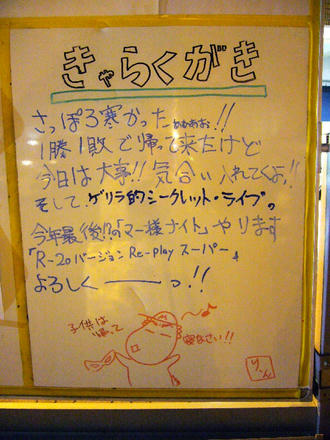 きゃらくがき
さっぽろ寒かったぁぁぁお!!
1勝1敗で帰って来たけど
今日は大事!!気合い入れてくよ!!
そして、ゲリラ的シークレット・ライブ。
今年最後!?の「マー様ナイト」やります
「R-20バージョン Re-play スーパー」
よろしくーーっ!!
子供は
帰って
寝なさい!!
りん